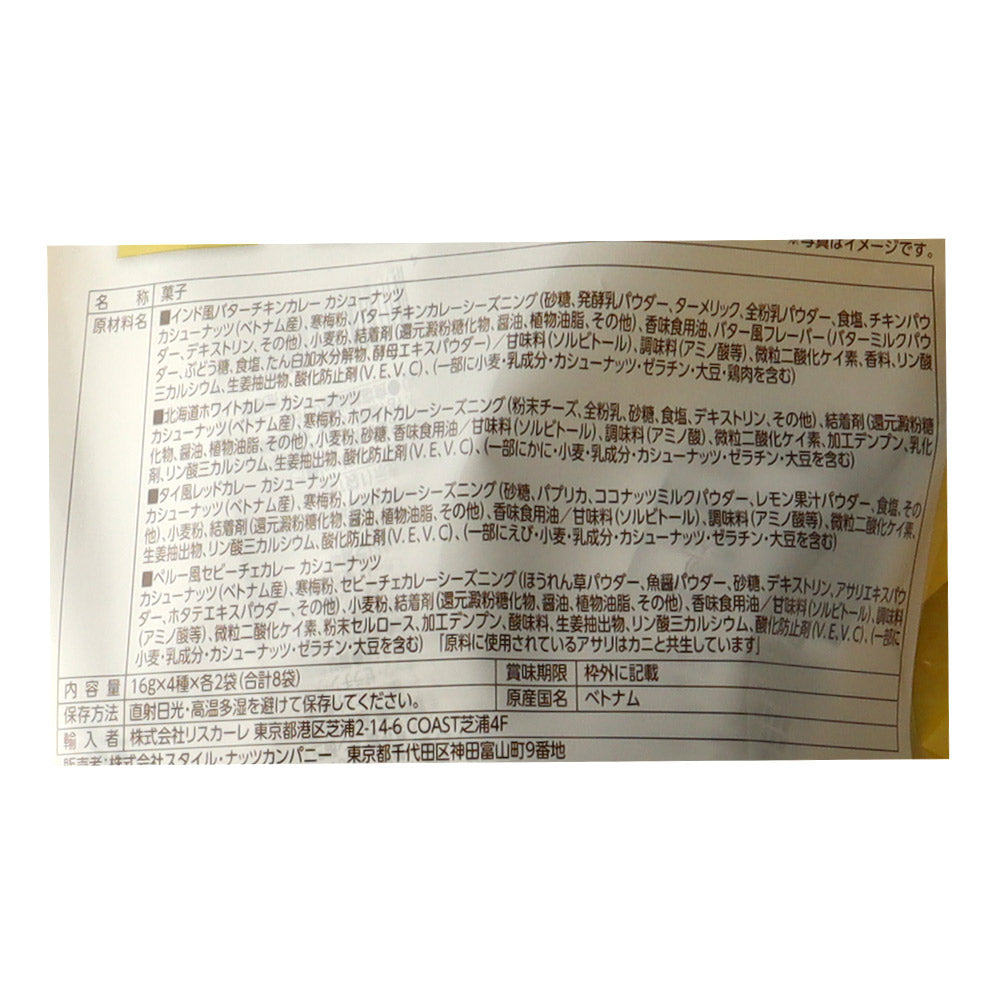 ※写真はイメージです。
名 称 菓子
原材料名 ■インド風バターチキンカレー カシューナッツ
カシューナッツ(ベトナム産)、寒梅粉、バターチキンカレーシーズニング(砂糖、発酵乳パウダー、ターメリック、全粉乳パウダー、食塩、チキンパウ
ダー、デキストリン、その他)、小麦粉、結着剤(還元澱粉糖化物、醤油、植物油脂、その他)、香味食用油、バター風フレーバー(バターミルクパウ
ダー、ぶどう糖、食塩、たん白加水分解物、酵母エキスパウダー)/甘味料(ソルビトール)、調味料(アミノ酸等)、微粒二酸化ケイ素、香料、リン酸
三カルシウム、生姜抽出物、酸化防止剤(V.E、V.C)、(一部に小麦・乳成分・カシューナッツ・ゼラチン・大豆・鶏肉を含む)
■北海道ホワイトカレー カシューナッツ
カシューナッツ(ベトナム産)、寒梅粉、ホワイトカレーシーズニング(粉末チーズ、全粉乳、砂糖、食塩、デキストリン、その他)、結着剤(還元澱粉糖
化物、醤油、植物油脂、その他)、小麦粉、砂糖、香味食用油/甘味料(ソルビトール)、調味料(アミノ酸)、微粒二酸化ケイ素、加工デンプン、乳化
剤、リン酸三カルシウム、生姜抽出物、酸化防止剤(V.E、V.C)、(一部にかに・小麦・乳成分・カシューナッツ・ゼラチン・大豆を含む)
■タイ風レッドカレー カシューナッツ
カシューナッツ(ベトナム産)、寒梅粉、レッドカレーシーズニング(砂糖、パプリカ、ココナッツミルクパウダー、レモン果汁パウダー、食塩、その
他)、小麦粉、結着剤(還元澱粉糖化物、醤油、植物油脂、その他)、香味食用油/甘味料(ソルビトール)、調味料(アミノ酸等)、微粒二酸化ケイ素、
生姜抽出物、リン酸三カルシウム、酸化防止剤(V.E、V.C)、(一部にえび・小麦・乳成分・カシューナッツ・ゼラチン・大豆を含む)
■ペルー風セビーチェカレー カシューナッツ
カシューナッツ(ベトナム産)、寒梅粉、セビーチェカレーシーズニング(ほうれん草パウダー、魚醤パウダー、砂糖、デキストリン、アサリエキスパウ
ダー、ホタテエキスパウダー、その他)、小麦粉、結着剤(還元澱粉糖化物、醤油、植物油脂、その他)、香味食用油/甘味料(ソルビトール)、調味料
(アミノ酸等)、微粒二酸化ケイ素、粉末セルロース、加工デンプン、酸味料、生姜抽出物、リン酸三カルシウム、酸化防止剤(V.E、V.C)、(一部に
小麦・乳成分・カシューナッツ・ゼラチン・大豆を含む) 「原料に使用されているアサリはカニと共生しています」
内 容 量 16g×4種×各2袋(合計8袋) 賞味期限 枠外に記載
保存方法 直射日光・高温多湿を避けて保存してください。 原産国名 ベトナム
輸 入 者 株式会社リスカーレ 東京都港区芝浦2-14-6 COAST芝浦4F
販売者:株式会社スタイル・ナッツカンパニー 東京都千代田区神田富山町9番地